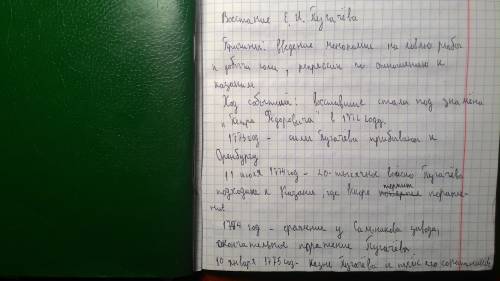 Восстание Е. И. Пугачёва
Причины: введение монополии на ловлю рыбы
и добычу соли, репрессии по отношению к
казакам
Ход событий: восставшие стали под знамёна
"Петра Фёдоровича" в 1772 году.
1773 год - силы Пугачёва прибывают к
Оренбургу
11 июля 1774 год - 20-тысячное войско Пугачёва
подходит к Казани, где вскоре терпит пораже-
ние
1774 год - сражение у Сальникова завода,
окончательное поражение Пугачёва
10 января 1775 год - казнь Пугачёва и его соратников